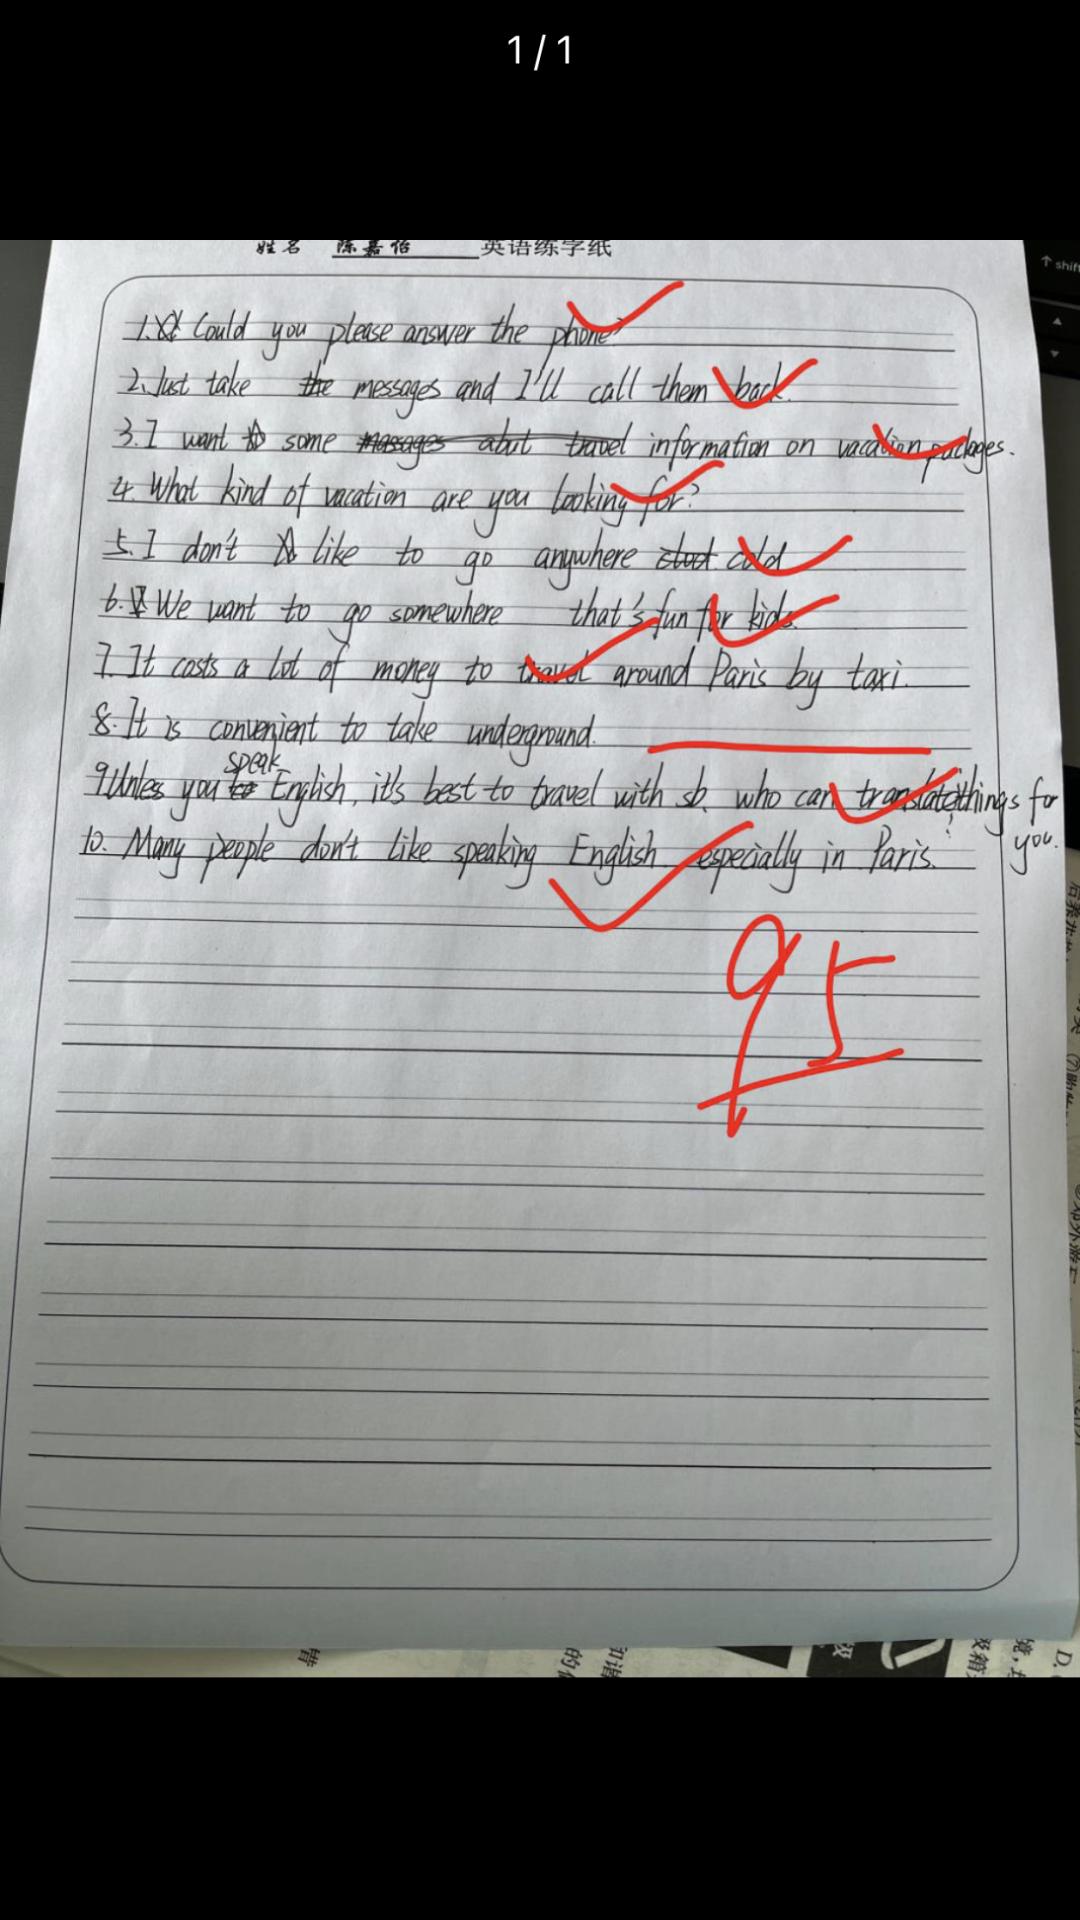 1/1
姓名 陈嘉怡 英语练字纸
shift
1. Could you please answer the phone?
2. Just take the messages and I'll call them back.
3. I want some messages abut travel information on vacation packages.
4. What kind of vacation are you looking for?
5. I don't like to go anywhere cold
6. We want to go somewhere that's fun for kids.
7. It costs a lot of money to travel around Paris by taxi.
8. It is convenient to take underground.
speak
9. Unless you English, it's best to travel with sb. who can translate things for
you.
10. Many people don't like speaking English especially in Paris.
95
D.